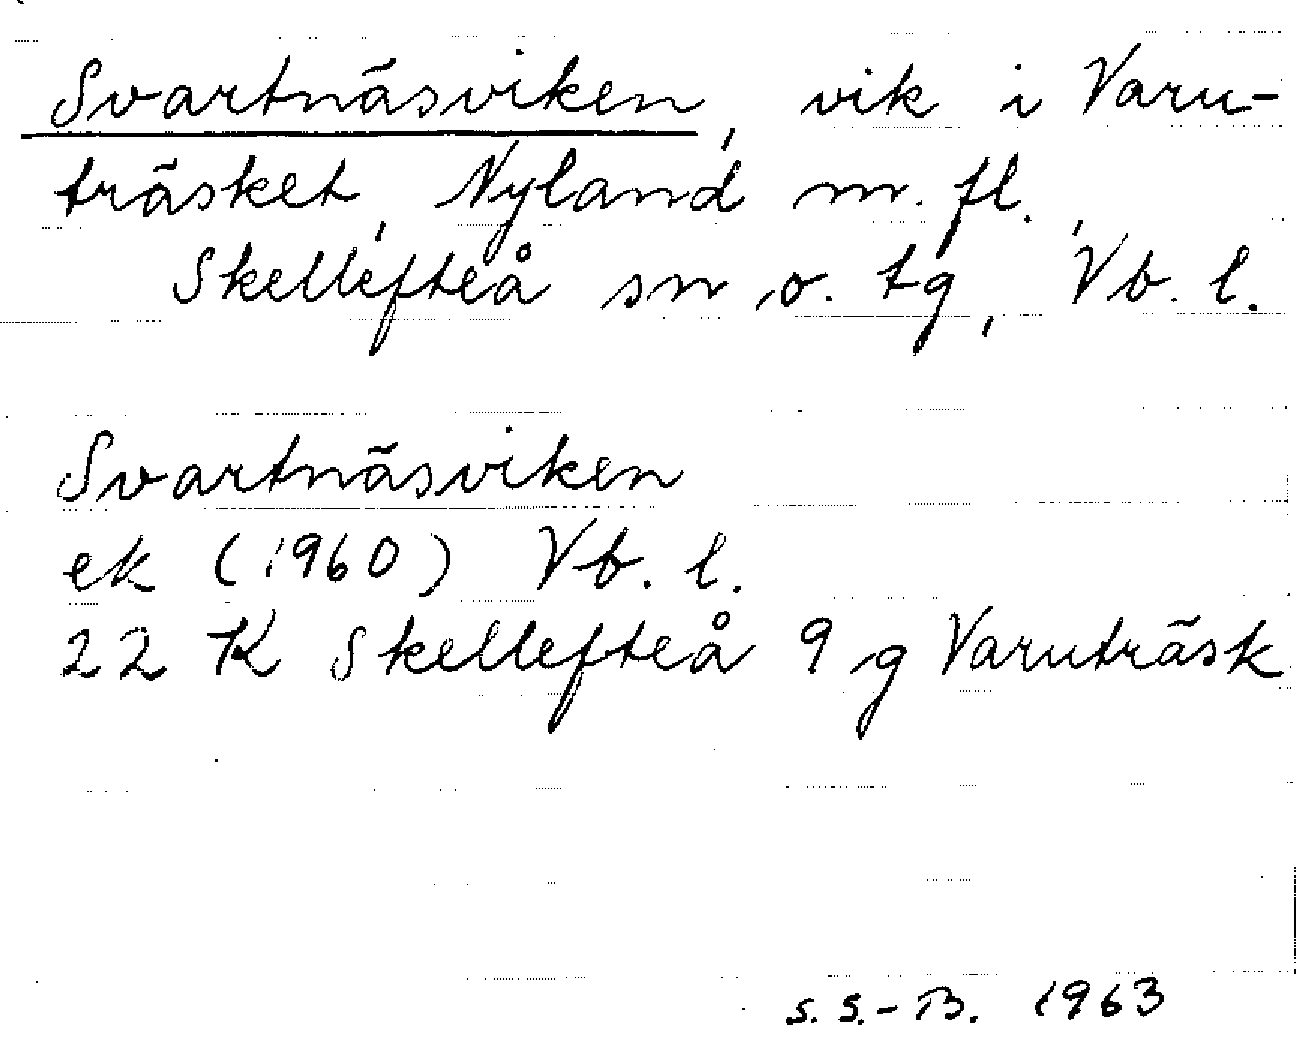 Svartnäsviken, vik i Varu-
träsket, Nyland m. fl.,
Skellefteå sn o. tg, Vb. l.
Svartnäsviken
ek (1960) Vb. l.
22 K Skellefteå 9 g Varuträsk
S. S.-B. 1963